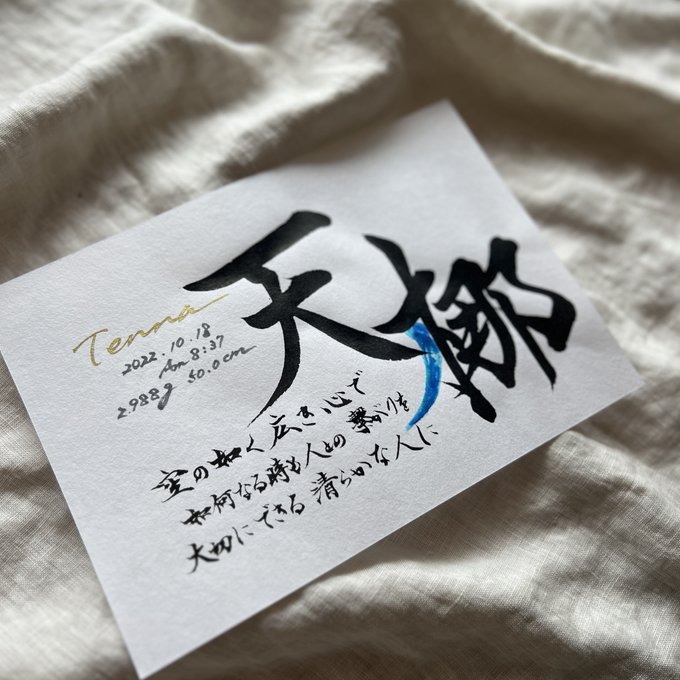 天梛
Tenna
2022.10.18
Am 8:37
2.988g 50.0cm
空の如く広き心で
如何なる時も人との繋がりを
大切にできる清らかな人に